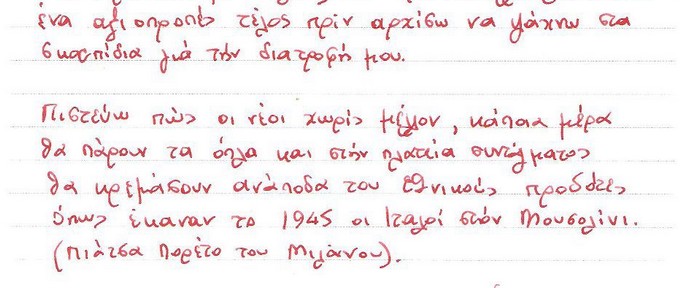 ένα αξιοπρεπές τέλος πρίν αρχίσω να ψάχνω στα
σκουπίδια γιά τήν διατροφή μου.
Πιστεύω πώς οι νέοι χωρίς μέλλον, κάποια μέρα
θα πάρουν τα όπλα και στήν πλατεία συντάγματος
θα κρεμάσουν ανάποδα του εθνικούς προδότες
όπως έκαναν το 1945 οι Ιταλοί στόν Μουσολίνι.
(Πιάτσα Πορέτο του Μιλάνου).